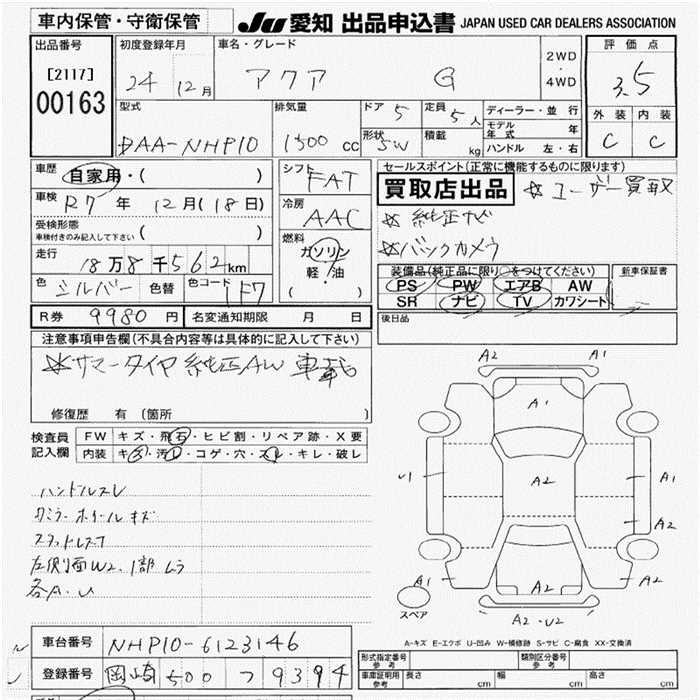 車内保管・守衛保管 JU 愛知 出品申込書 JAPAN USED CAR DEALERS ASSOCIATION
出品番号 初度登録年月 車名・グレード 2WD・4WD 評価点
[2117] 24 12月 アクア G 3.5
00163 外装 内装
型式 排気量 ドア 5 定員 5人 ディーラー・並行 C C
DAA-NHP10 1500cc 形状 5W 積載 kg モデル年式 年
ハンドル 左・右
車歴 自家用・( ) シフト FAT セールスポイント(正常に機能するものに限ります)
車検 R7年 12月(18日) 冷房 AAC 買取店出品 ☆ユーザー買取
受検形態 車検付きのみ記入して下さい( ) ☆純正ナビ
走行 18万8千562km 燃料 ガソリン 軽・油 ( ) ☆バックカメラ
色 シルバー 色替 色コード 1F7 装備品(純正品に限り○をつけてください) 新車保証書
PS PW エアB AW
SR ナビ TV カワシート
R券 9980円 名変通知期限 月 日 後日品
注意事項申告欄(不具合内容等は具体的に記入して下さい)
☆サマータイヤ純正AW 車載
修復歴 有 (箇所 )
検査員 記入欄 FW キズ・飛石・ヒビ割・リペア跡・X要
内装 キズ・汚レ・コゲ・穴・スレ・キレ・破レ
ハンドルスレ
左側面W2.1部ムラ
各A.U
A2 A1
A1
U1 A2 A2 A1
A2
A1 A2 A2
スペア A2・U2
A-キズ E-エクボ U-凹み W-補修跡 S-サビ C-腐食 XX-交換済
車台番号 NHP10-6123146
登録番号 岡崎 500 フ 9394
形式指定番号 参考 類別区分番号 参考
車庫証明用 参考 長さ cm 幅 cm 高さ cm